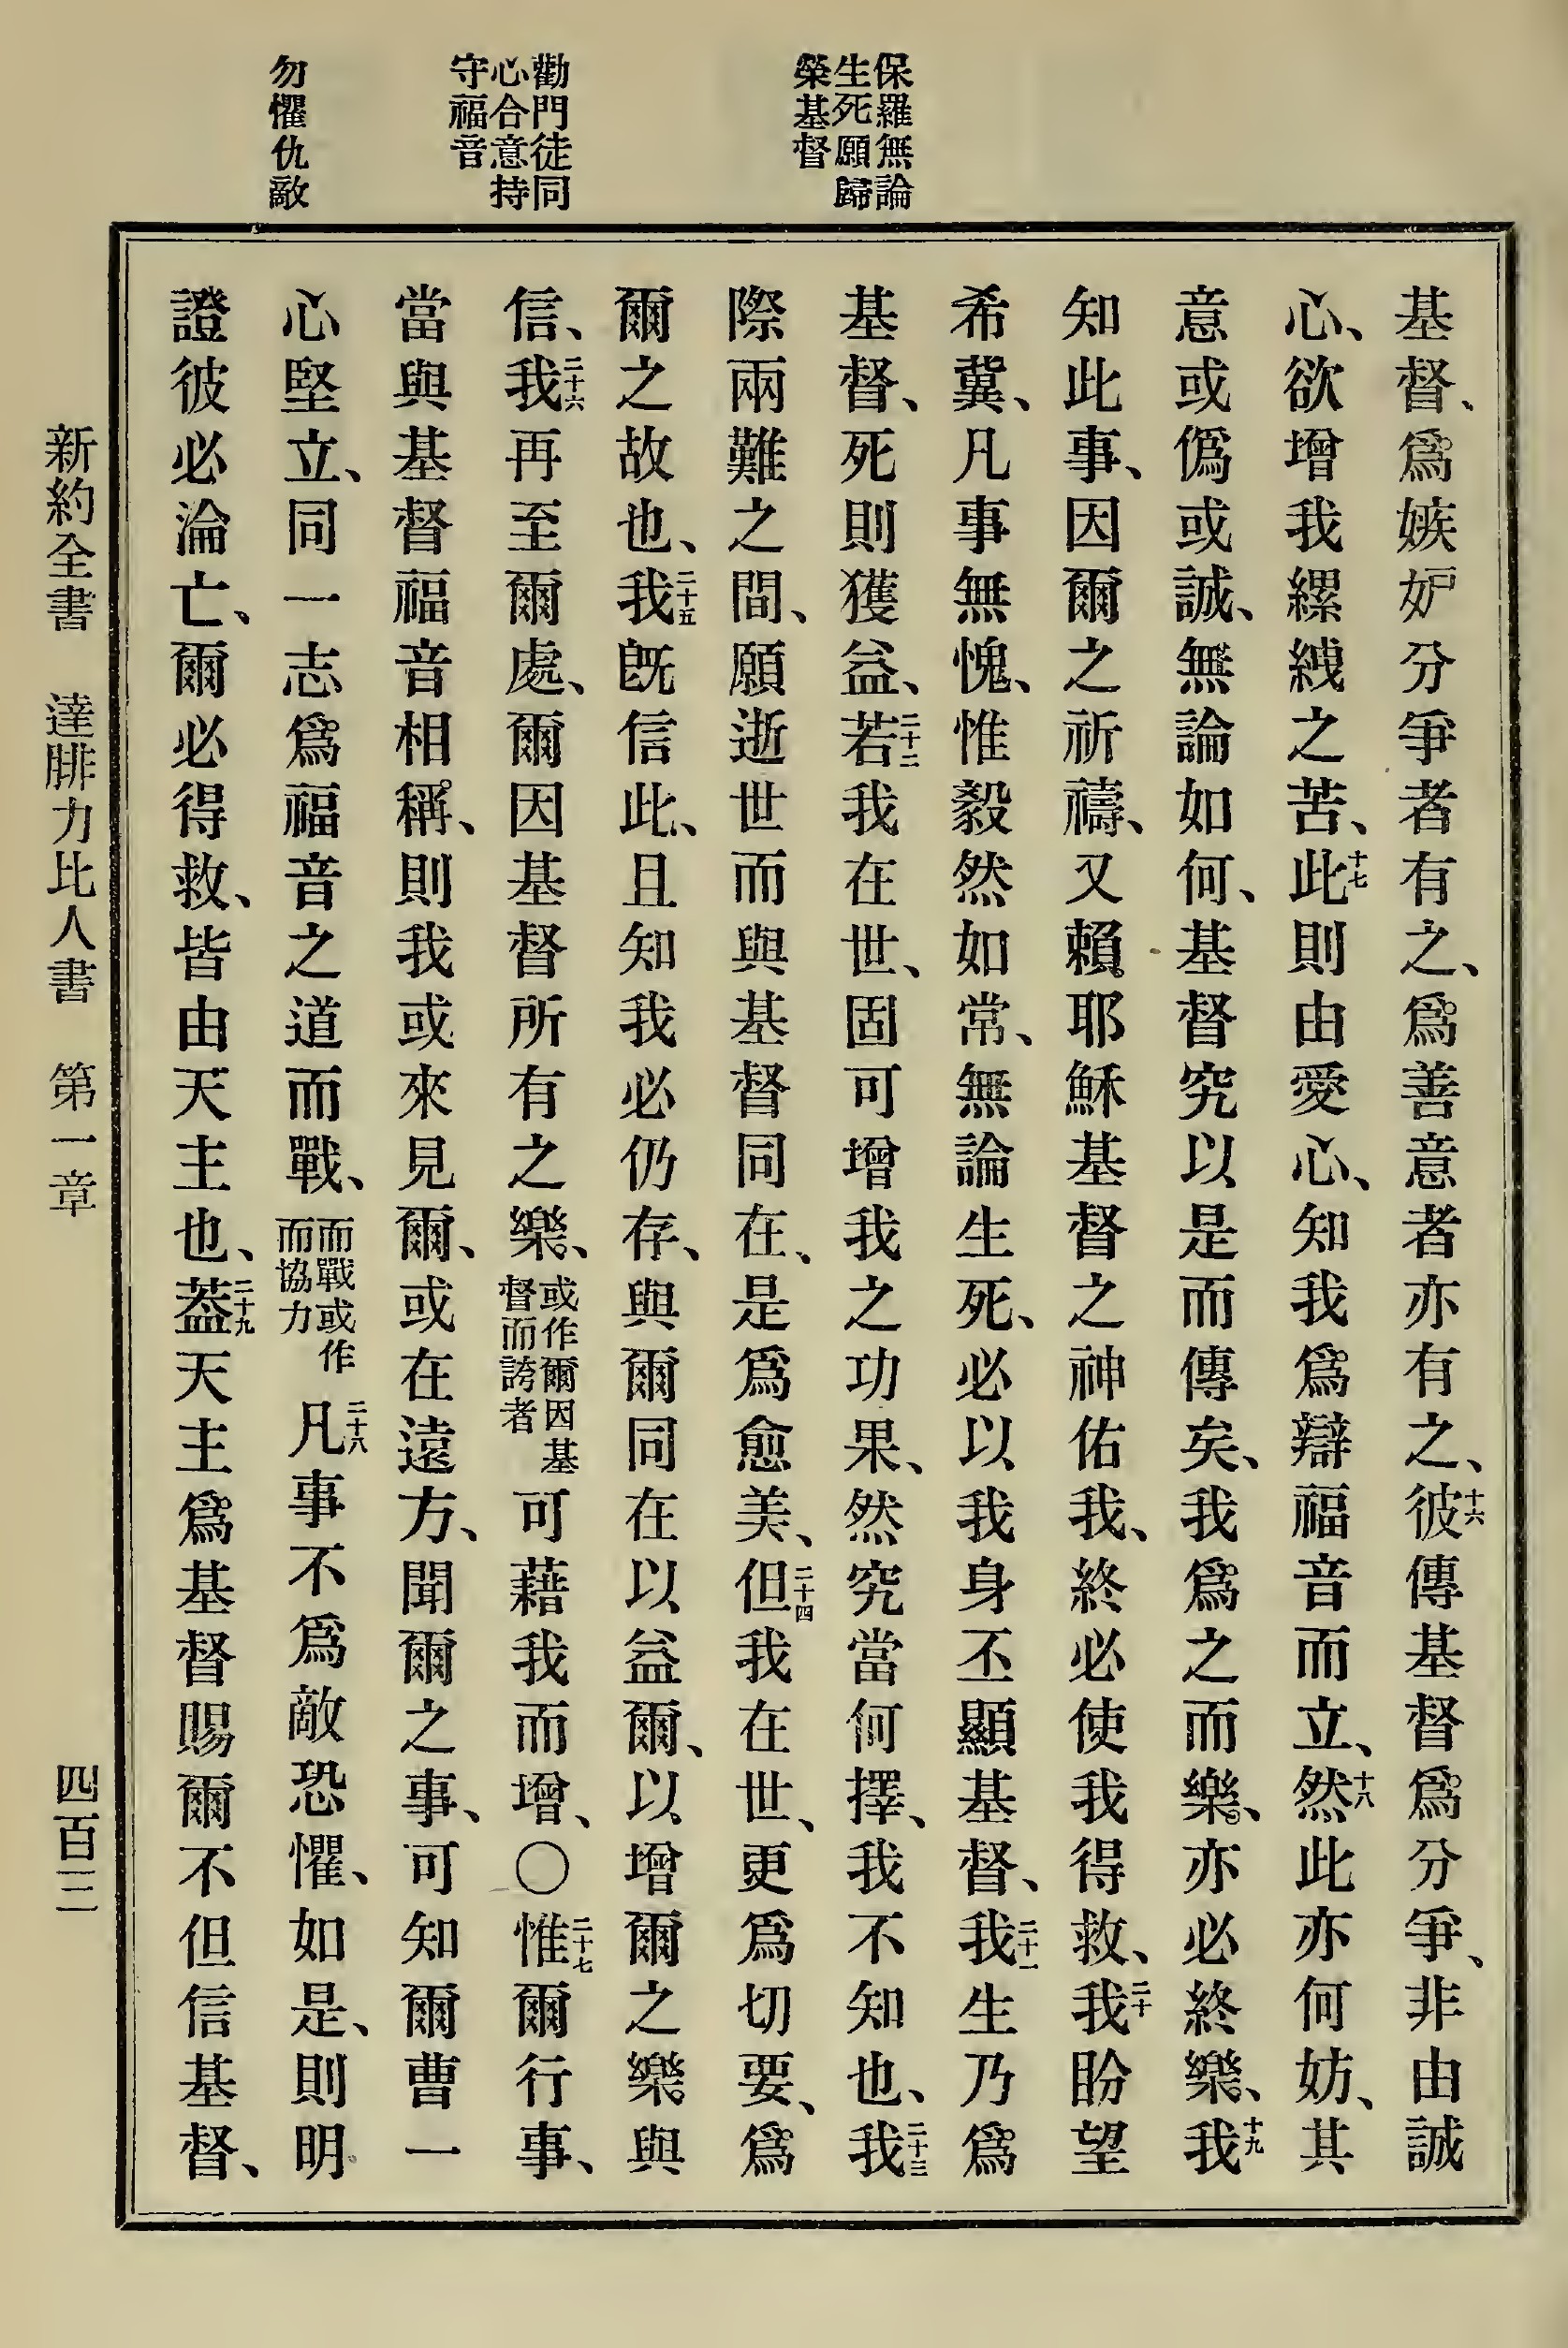 保羅無論
生死願歸
榮基督
勸門徒同
心合意持
守福音
勿懼仇敵
基督、爲嫉妒分爭者有之、爲善意者亦有之、十六彼傳基督爲分爭、非由誠
心、欲增我縲絏之苦、十七此則由愛心、知我爲辯福音而立、十八然此亦何妨、其
意或僞或誠、無論如何、基督究以是而傳矣、我爲之而樂、亦必終樂、十九我
知此事、因爾之祈禱、又賴耶穌基督之神佑我、終必使我得救、二十我盼望
希冀、凡事無愧、惟毅然如常、無論生死、必以我身丕顯基督、二十一我生乃爲
基督、死則獲益、二十二若我在世、固可增我之功果、然究當何擇、我不知也、二十三我
際兩難之間、願逝世而與基督同在、是爲愈美、二十四但我在世、更爲切要、爲
爾之故也、二十五我旣信此、且知我必仍存、與爾同在以益爾、以增爾之樂與
信、二十六我再至爾處、爾因基督所有之樂、或作爾因基督而誇者可藉我而增、〇二十七惟爾行事、
當與基督福音相稱、則我或來見爾、或在遠方、聞爾之事、可知爾曹一
心堅立、同一志爲福音之道而戰、而戰或作而協力二十八凡事不爲敵恐懼、如是、則明
證彼必淪亡、爾必得救、皆由天主也、二十九蓋天主爲基督賜爾不但信基督、
新約全書 達腓力比人書 第一章 四百三